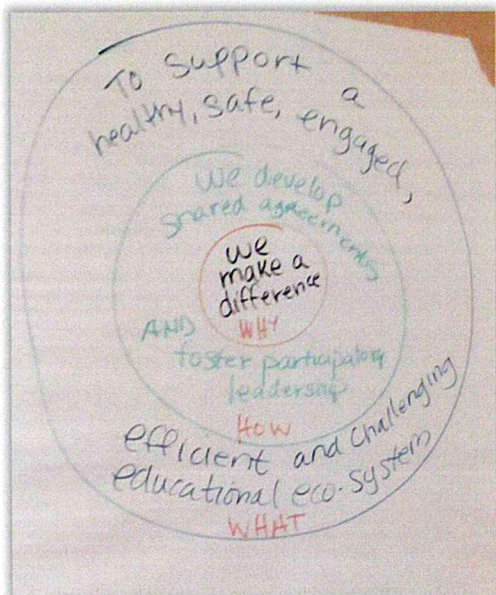 To support a
healthy, safe, engaged,
we develop
shared agreements
we
make a
difference
WHY
AND
foster participatory
leadership
HOW
efficient and challenging
educational eco-system
WHAT